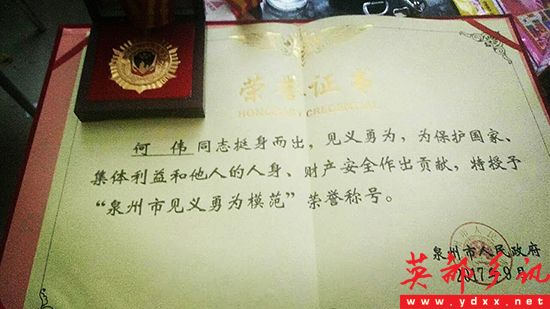 荣誉证书
HONORARY CREDENTIAL
何伟同志挺身而出，见义勇为，为保护国家、
集体利益和他人的人身、财产安全作出贡献，特授予
“泉州市见义勇为模范”荣誉称号。
泉州市人民政府
2017年9月
英都乡讯
www.ydxx.net